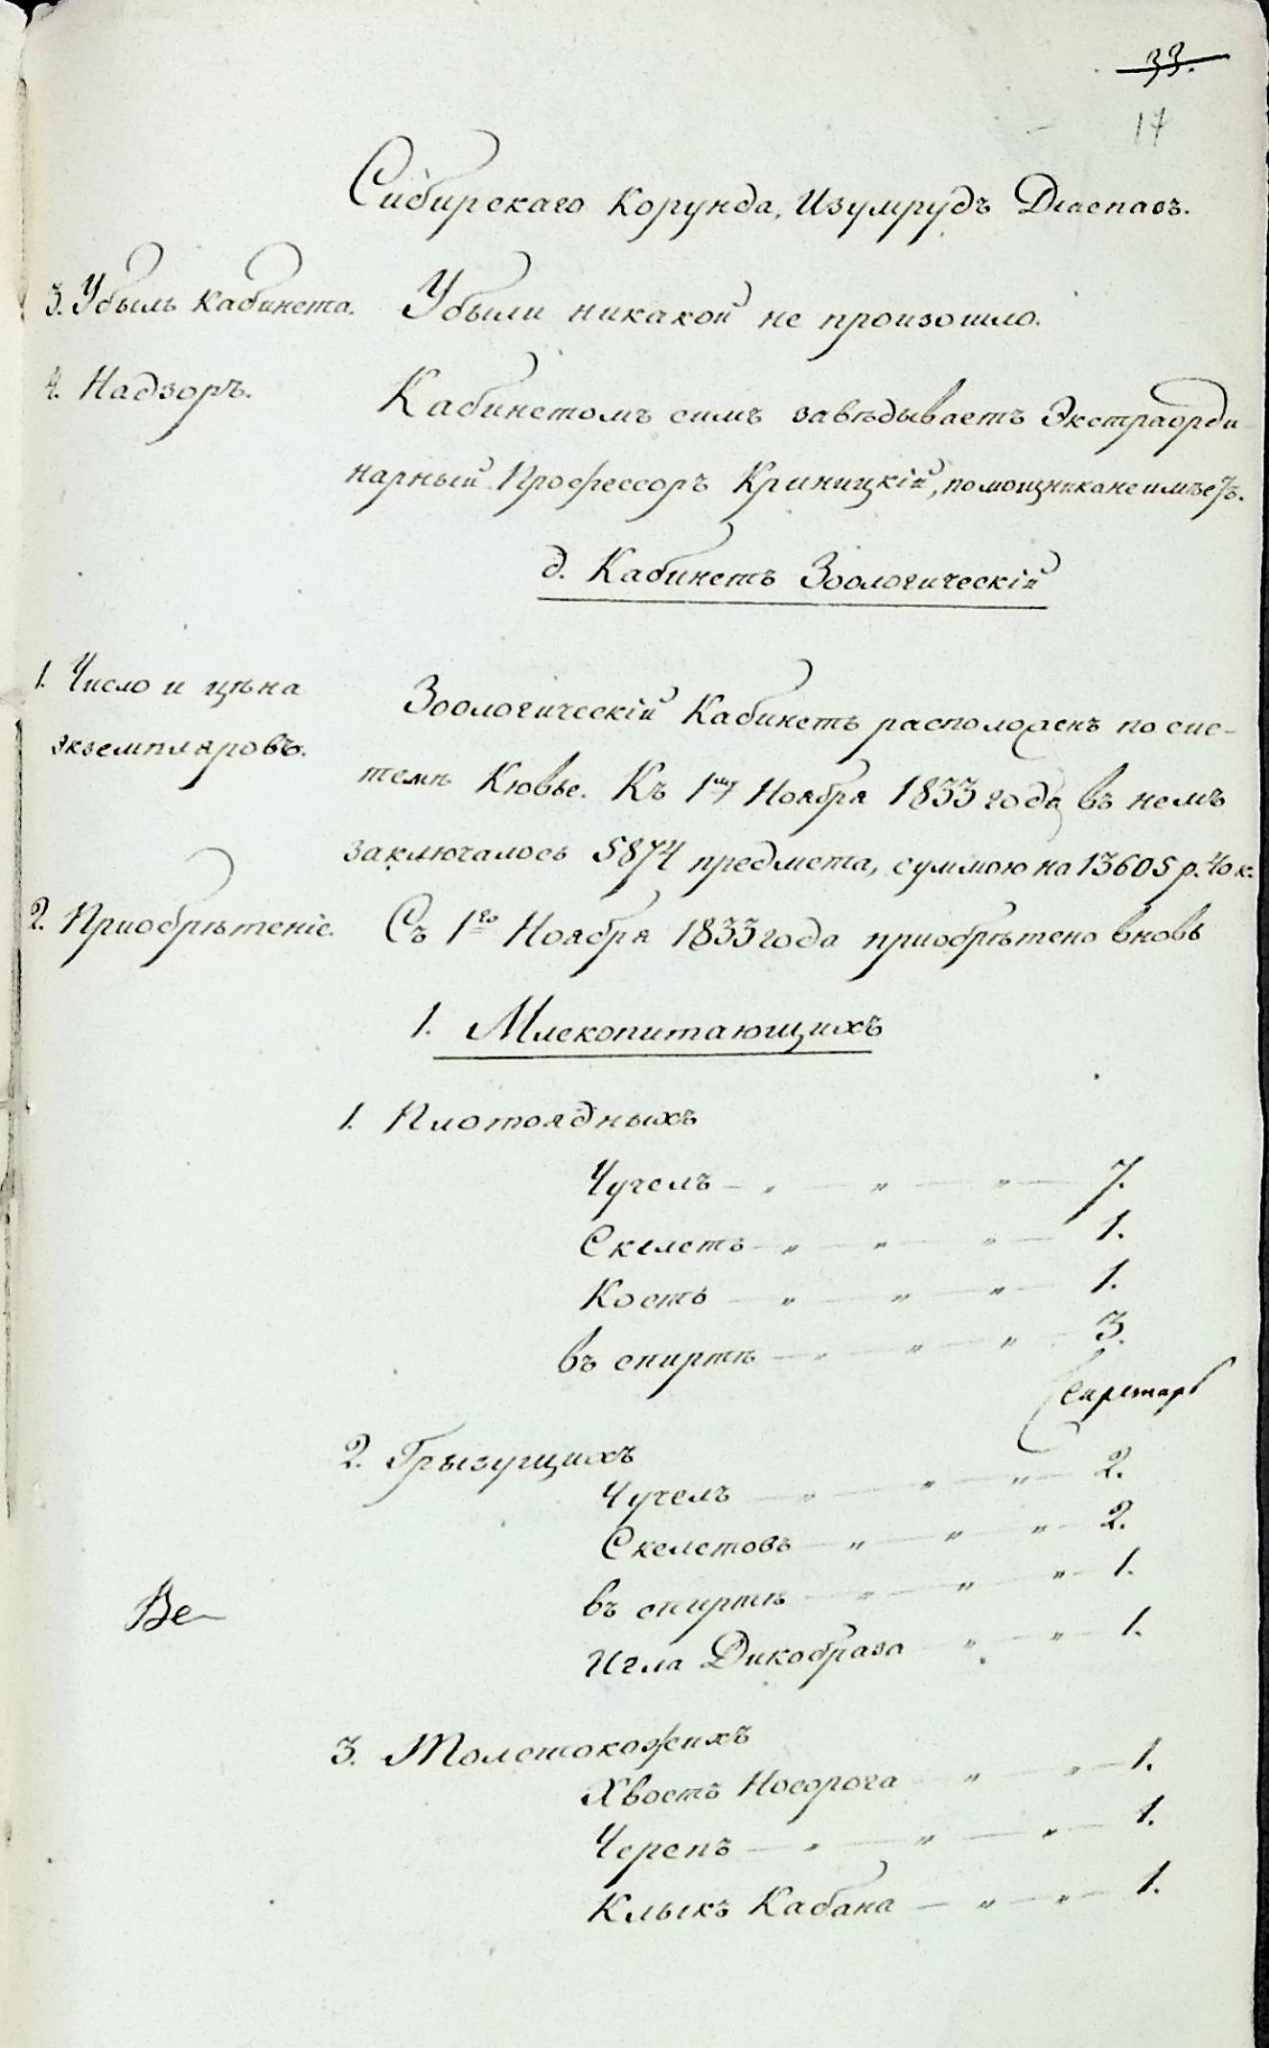 33.
17
Сибирскаго Корунда, Изумрудъ Діаспазъ.
3. Убыль Кабинета. Убыли никакой не произошло.
4. Надзоръ. Кабинетомъ симъ завѣдываетъ Экстраорди-
нарный Профессоръ Криницкій, помощника не имѣетъ.
д. Кабинетъ Зоологическій
1. Число и цѣна Зоологическій Кабинетъ расположенъ по сис-
экземпляровъ. темѣ Кювье. Къ 1му Ноября 1833 года въ немъ
заключалось 5874 предмета, суммою на 13605 р. 40 к.
2. Пріобрѣтеніе. Съ 1го Ноября 1833 года пріобрѣтено вновь
1. Млекопитающихъ
1. Плотоядныхъ
Чучелъ — „ — „ — „ — 7.
Скелетъ — „ — „ — „ — 1.
Кость — „ — „ — „ — 1.
въ спиртѣ — „ — „ — „ — 3.
Секретарь
2. Грызущихъ
Чучелъ — „ — „ — „ — 2.
Скелетовъ — „ — „ — „ — 2.
въ спиртѣ — „ — „ — „ — 1.
Игла Дикобраза — „ — „ — 1.
Ве
3. Толстокожихъ
Хвостъ Носорога — „ — „ — 1.
Черепъ — „ — „ — „ — 1.
Клыкъ Кабана — „ — „ — 1.